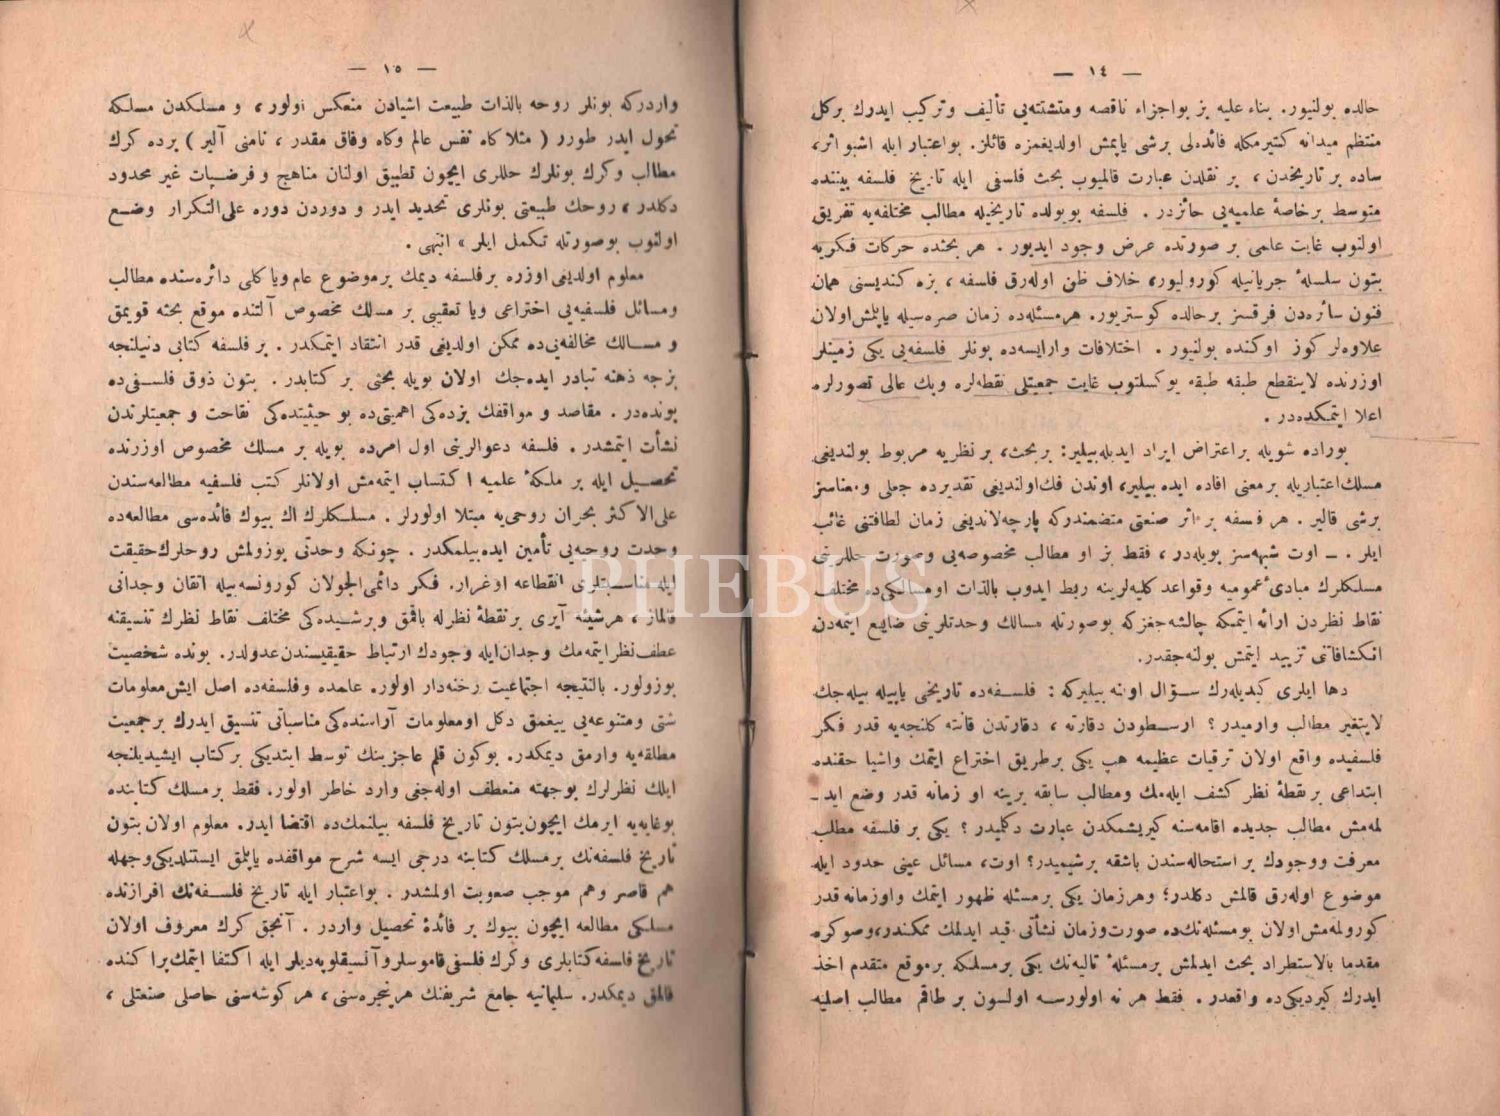 — ١٤ —
حالده بولنیور. بناء علیه بز بواجزاء ناقصه ومتشتته‌یی تألیف وترکیب ایدرك برکل
منتظم میدانه کتیرمکله فائده‌لی برشی یاپمش اولدیغمزه قائلز. بواعتبار ایله اشبواثر،
ساده بر تاریخدن ، بر نقلدن عبارت قالمیوب بحث فلسفی ایله تاریخ فلسفه بیننده
متوسط برخاصهٔ علمیه‌یی حائزدر. فلسفه بویولده تاریخیله مطالب مختلفه‌یه تفریق
اولنوب غایت علمی بر صورتده عرض وجود ایدیور. هر بحثده حرکات فکریه
بتون سلسلهٔ جریانیله کورولیور، خلاف ظن اوله‌رق فلسفه ، بزه کندیسنی همان
فنون سائره‌دن فرقسز برحالده کوستریور. هرمسئله‌ده زمان صره‌سیله یاپلمش‌اولان
علاوه‌لر کوز اوکنده بولنیور. اختلافات وارایسه‌ده بونلر فلسفه‌یی یکی زمینلر
اوزرنده لاینقطع طبقه طبقه یوکسلتوب غایت جمعیتلی نقطه‌لره وپك عالی تصورلره
اعلا ایتمکده‌در.
بوراده شویله براعتراض ایراد ایدیله‌بیلیر: بربحث، بر نظریه مربوط بولندیغی
مسلك‌اعتباریله برمعنی افاده ایده بیلیر، اوندن فك‌اولندیغی تقدیرده جعلی ومعناسز
برشی قالیر. هر فلسفه بر اثر صنعتی متضمندرکه پارچه‌لاندیغی زمان لطافتنی غائب
ایلر. — اوت شبهه‌سز بویله‌در، فقط بز او مطالب مخصوصه‌یی وصورت حللرینی
مسلکلرك مبادیٔ عمومیه وقواعد کلیه‌لرینه ربط ایدوب بالذات اومسالکی‌ده مختلف
نقاط نظردن ارائه ایتمکه چالیشه‌جغزکه بوصورتله مسالك وحدتلرینی ضایع ایتمه‌دن
انکشافاتنی تزیید ایتمش بولنه‌جقدر.
دها ایلری کیدیله‌رك سؤال اولنه بیلیرکه: فلسفه‌ده تاریخی یاپیله بیله‌جك
لایتغیر مطالب وارمیدر؟ ارسطودن دقارته ، دقارتدن قانته کلنجه‌یه قدر فکر
فلسفیده واقع اولان ترقیات عظیمه هپ یکی برطریق اختراع ایتمك واشیا حقنده
ابتداعی برنقطهٔ نظر کشف ایله‌مك ومطالب سابقه یرینه او زمانه قدر وضع اید‌ـ
لمه‌مش مطالب جدیده اقامه‌سنه کیریشمکدن عبارت دکلمیدر؟ یکی بر فلسفه مطلب
معرفت ووجودك بر استحاله‌سندن باشقه برشیمیدر؟ اوت، مسائل عینی حدود ایله
موضوع اوله‌رق قالمش دکلدر؛ وهرزمان یکی برمسئله ظهور ایتمك واوزمانه قدر
کورولمه‌مش‌اولان بومسئله‌نك‌ده صورت‌وزمان نشأتی قید ایدلمك ممکندر، وصوکره
مقدما بالاستطراد بحث ایدلمش برمسئلهٔ تالیه‌نك یکی برمسلکه برموقع متقدم اخذ
ایدرك کیردیکی‌ده واقعدر. فقط هر نه اولورسه اولسون بر طاقم مطالب اصلیه
— ١٥ —
واردرکه بونلر روحه بالذات طبیعت اشیادن منعکس اولور، و مسلکدن مسلکه
تحول ایدر طورر ( مثلا کاه نفس عالم وکاه وفاق مقدر ، نامنی آلیر ) برده کرك
مطالب وکرك بونلرك حللری ایچون تطبیق اولنان مناهج وفرضیات غیر محدود
دکلدر، روحك طبیعتی بونلری تحدید ایدر و دوردن دوره علی‌التکرار وضع
اولنوب بوصورتله تکمل ایلر » انتهی .
معلوم اولدیغی اوزره برفلسفه دیمك برموضوع عام ویا کلی دائره‌سنده مطالب
ومسائل فلسفیه‌یی اختراعی ویا تعقیبی بر مسلك مخصوص آلتنده موقع بحثه قویمق
و مسالك مخالفه‌یی‌ده ممکن اولدیغی قدر انتقاد ایتمکدر. بر فلسفه کتابی دنیلنجه
بزجه ذهنه تبادر ایده‌جك اولان بویله بحثی بر کتابدر. بتون ذوق فلسفی‌ده
بونده‌در. مقاصد و مواقفك بزده‌کی اهمیتی‌ده بو حیثیتده‌کی نقاحت و جمعیتلرندن
نشأت ایتمشدر. فلسفه دعوالرینی اول امرده بویله بر مسلك مخصوص اوزرنده
تحصیل ایله بر ملکهٔ علمیه اکتساب ایتمه‌مش اولانلر کتب فلسفیه مطالعه‌سندن
علی‌الاکثر بحران روحی‌یه مبتلا اولورلر. مسلکلرك اك بیوك فائده‌سی مطالعه‌ده
وحدت روحیه‌یی تأمین ایده‌بیلمکدر. چونکه وحدتی بوزولمش روحلرك‌حقیقت
ایله‌مناسبتلری انقطاعه اوغرار. فکر دائمی‌الجولان کورونسه‌بیله اتقان وجدانی
قالماز، هرشیئه آیری برنقطهٔ نظرله باقمق وبرشیده‌کی مختلف نقاط نظرك تنسیقنه
عطف‌نظرایتمه‌مك وجدان‌ایله وجودك ارتباط حقیقیسندن‌عدولدر. بونده شخصیت
بوزولور. بالنتیجه اجتماعیت رخنه‌دار اولور. علمده وفلسفه‌ده اصل ایش‌معلومات
شتی ومتنوعه‌یی ییغمق دکل اومعلومات آراسنده‌کی مناسباتی تنسیق ایدرك برجمعیت
مطلقه‌یه وارمق دیمکدر. بوکون قلم عاجزینك توسط ایتدیکی برکتاب ایشیدیلنجه
ایلك نظرلرك بوجهته منعطف اوله‌جغی وارد خاطر اولور. فقط برمسلك کتابنده
بوغایه‌یه ایرمك ایچون‌بتون تاریخ فلسفه بیلنمك‌ده اقتضا ایدر. معلوم اولان بتون
تاریخ فلسفه‌نك برمسلك کتابنه درجی ایسه شرح مواقفده یاپلمق ایستنلدیکی‌وجهله
هم قاصر وهم موجب صعوبت اولمشدر. بواعتبار ایله تاریخ فلسفه‌نك افرازنده
مسلکی مطالعه ایچون بیوك بر فائدهٔ تحصیل واردر. آنجق کرك معروف اولان
تاریخ فلسفه‌کتابلری وکرك فلسفی‌قاموسلر وآنسیقلوپه‌دیلر ایله اکتفا ایتمك‌براکنده
قالمق دیمکدر. سلیمانیه جامع شریفنك هرپنجره‌سنی، هرکوشه‌سنی حاصلی صنعتلی ،
PHEBUS